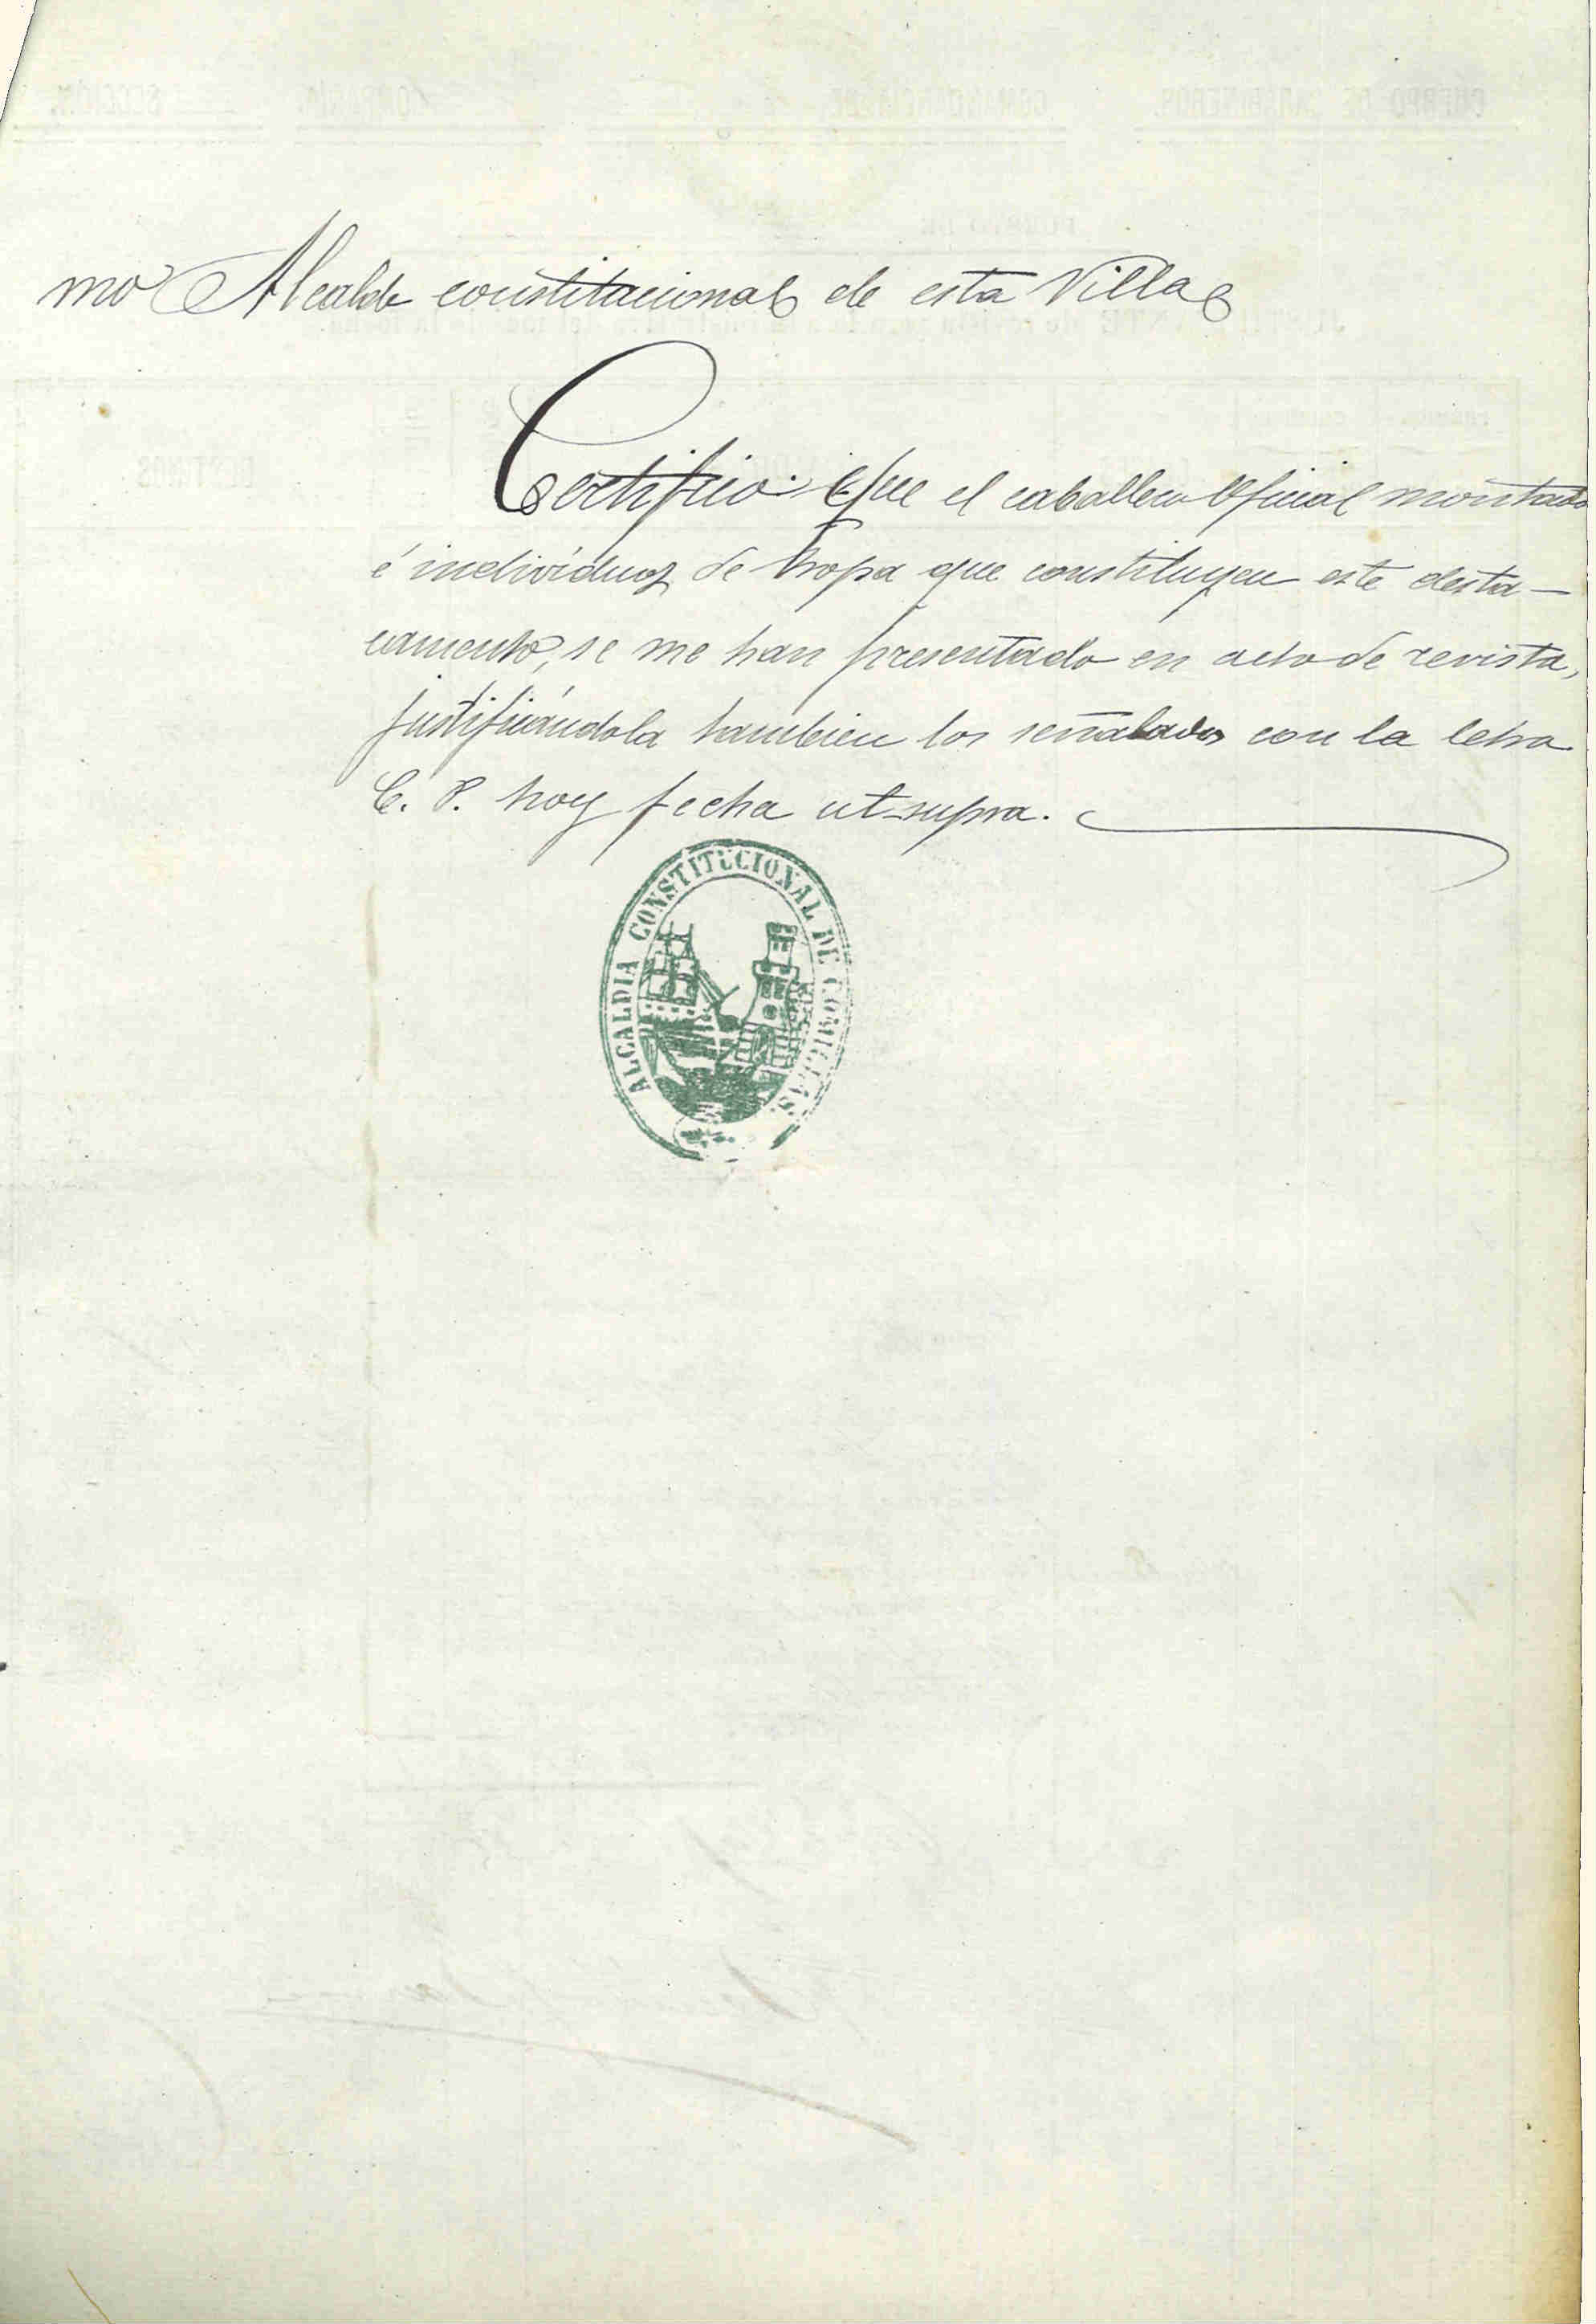 mo Alcalde constitucional de esta Villa
Certifico: Que el caballero Oficial montado
é individuos de tropa que constituyen este desta-
camento, se me han presentado en acto de revista,
justificándola tambien los señalados con la letra
C. P. hoy fecha ut-supra.
ALCALDIA CONSTITUCIONAL DE COMILLAS